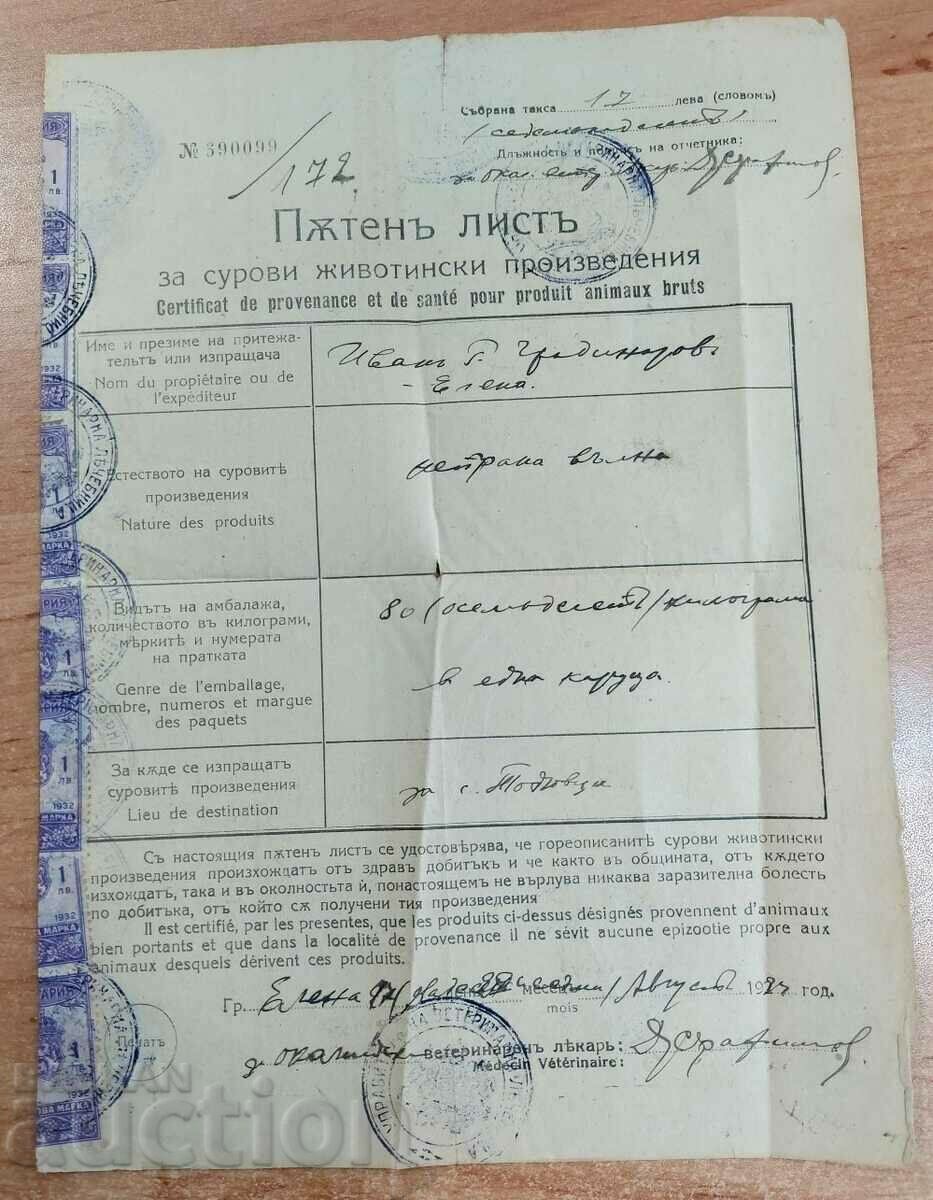 Събрана такса 17 лева (словомъ)
/ седемнадесетъ /
Длъжность и подпись на отчетника:
№ 390099
/172
Пѫтенъ листъ
за сурови животински произведения
Certificat de provenance et de santé pour produit animaux bruts
Име и презиме на притежа-
тельтъ или изпращача
Nom du propiétaire ou de
l'expéditeur
Иванъ Г. Градинаровъ
- Елена.
Естеството на суровитѣ
произведения
Nature des produits
непрана вълна
Видътъ на амбалажа,
количеството въ килограми,
мѣркитѣ и нумерата
на пратката
Genre de l'emballage,
nombre, numeros et margue
des paquets
80 (осемдесетъ) килограма
в една каруца.
За кѫде се изпращатъ
суровитѣ произведения
Lieu de destination
за с.
Съ настоящия пѫтенъ листъ се удостовѣрява, че гореописанитѣ сурови животински
произведения произхождатъ отъ здравъ добитъкъ и че както въ общината, отъ кѫдето
изхождатъ, така и въ околностьта ѝ, понастоящемъ не върлува никаква заразителна болесть
по добитъка, отъ който сѫ получени тия произведения
Il est certifié, par les presentes, que les produits ci-dessus désignés provennent d'animaux
bien portants et que dans la localité de provenance il ne sévit aucune epizootie propre aux
animaux desquels dérivent ces produits.
Гр. Елена месецъ Августъ 19 год.
mois
Печатъ
ветеринаренъ лѣкарь:
Médecin Vétérinaire:
1 лв.
1932
МАРКА
BULGARIAN
auction